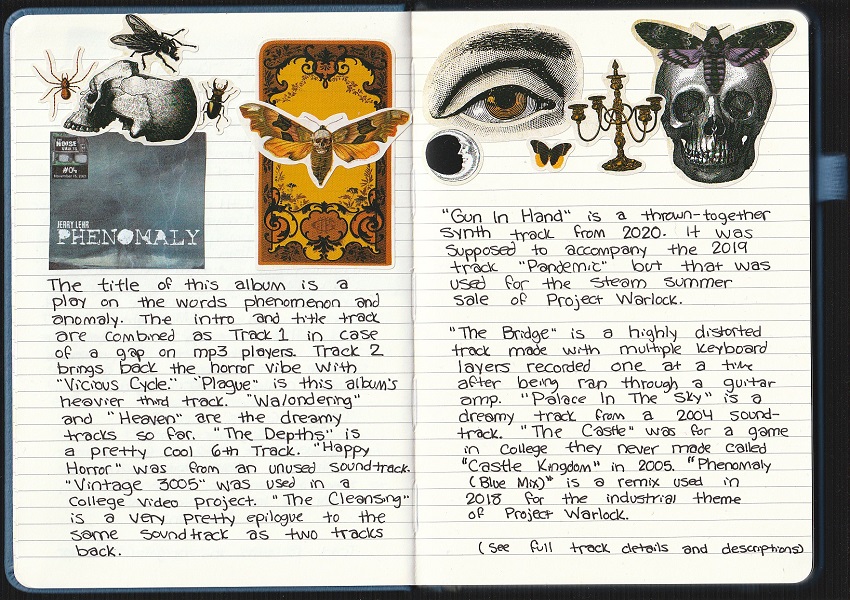 THE NOISE VAULTS
#04
November 15, 2021
JERRY LEHR
PHENOMALY
The title of this album is a
play on the words phenomenon and
anomaly. The intro and title track
are combined as Track 1 in case
of a gap on mp3 players. Track 2
brings back the horror vibe with
"Vicious Cycle." "Plague" is this album's
heavier third track. "Wa/ondering"
and "Heaven" are the dreamy
tracks so far. "The Depths" is
a pretty cool 6th Track. "Happy
Horror" was from an unused soundtrack.
"Vintage 3005" was used in a
college video project. "The Cleansing"
is a very pretty epilogue to the
same soundtrack as two tracks
back.
"Gun In Hand" is a thrown-together
synth track from 2020. It was
supposed to accompany the 2019
track "Pandemic" but that was
used for the Steam Summer
sale of Project Warlock.
"The Bridge" is a highly distorted
track made with multiple keyboard
layers recorded one at a time
after being ran through a guitar
amp. "Palace In The Sky" is a
dreamy track from a 2004 sound-
track. "The Castle" was for a game
in college they never made called
"Castle Kingdom" in 2005. "Phenomaly
(Blue Mix)" is a remix used in
2018 for the industrial theme
of Project Warlock.
(See full track details and descriptions)